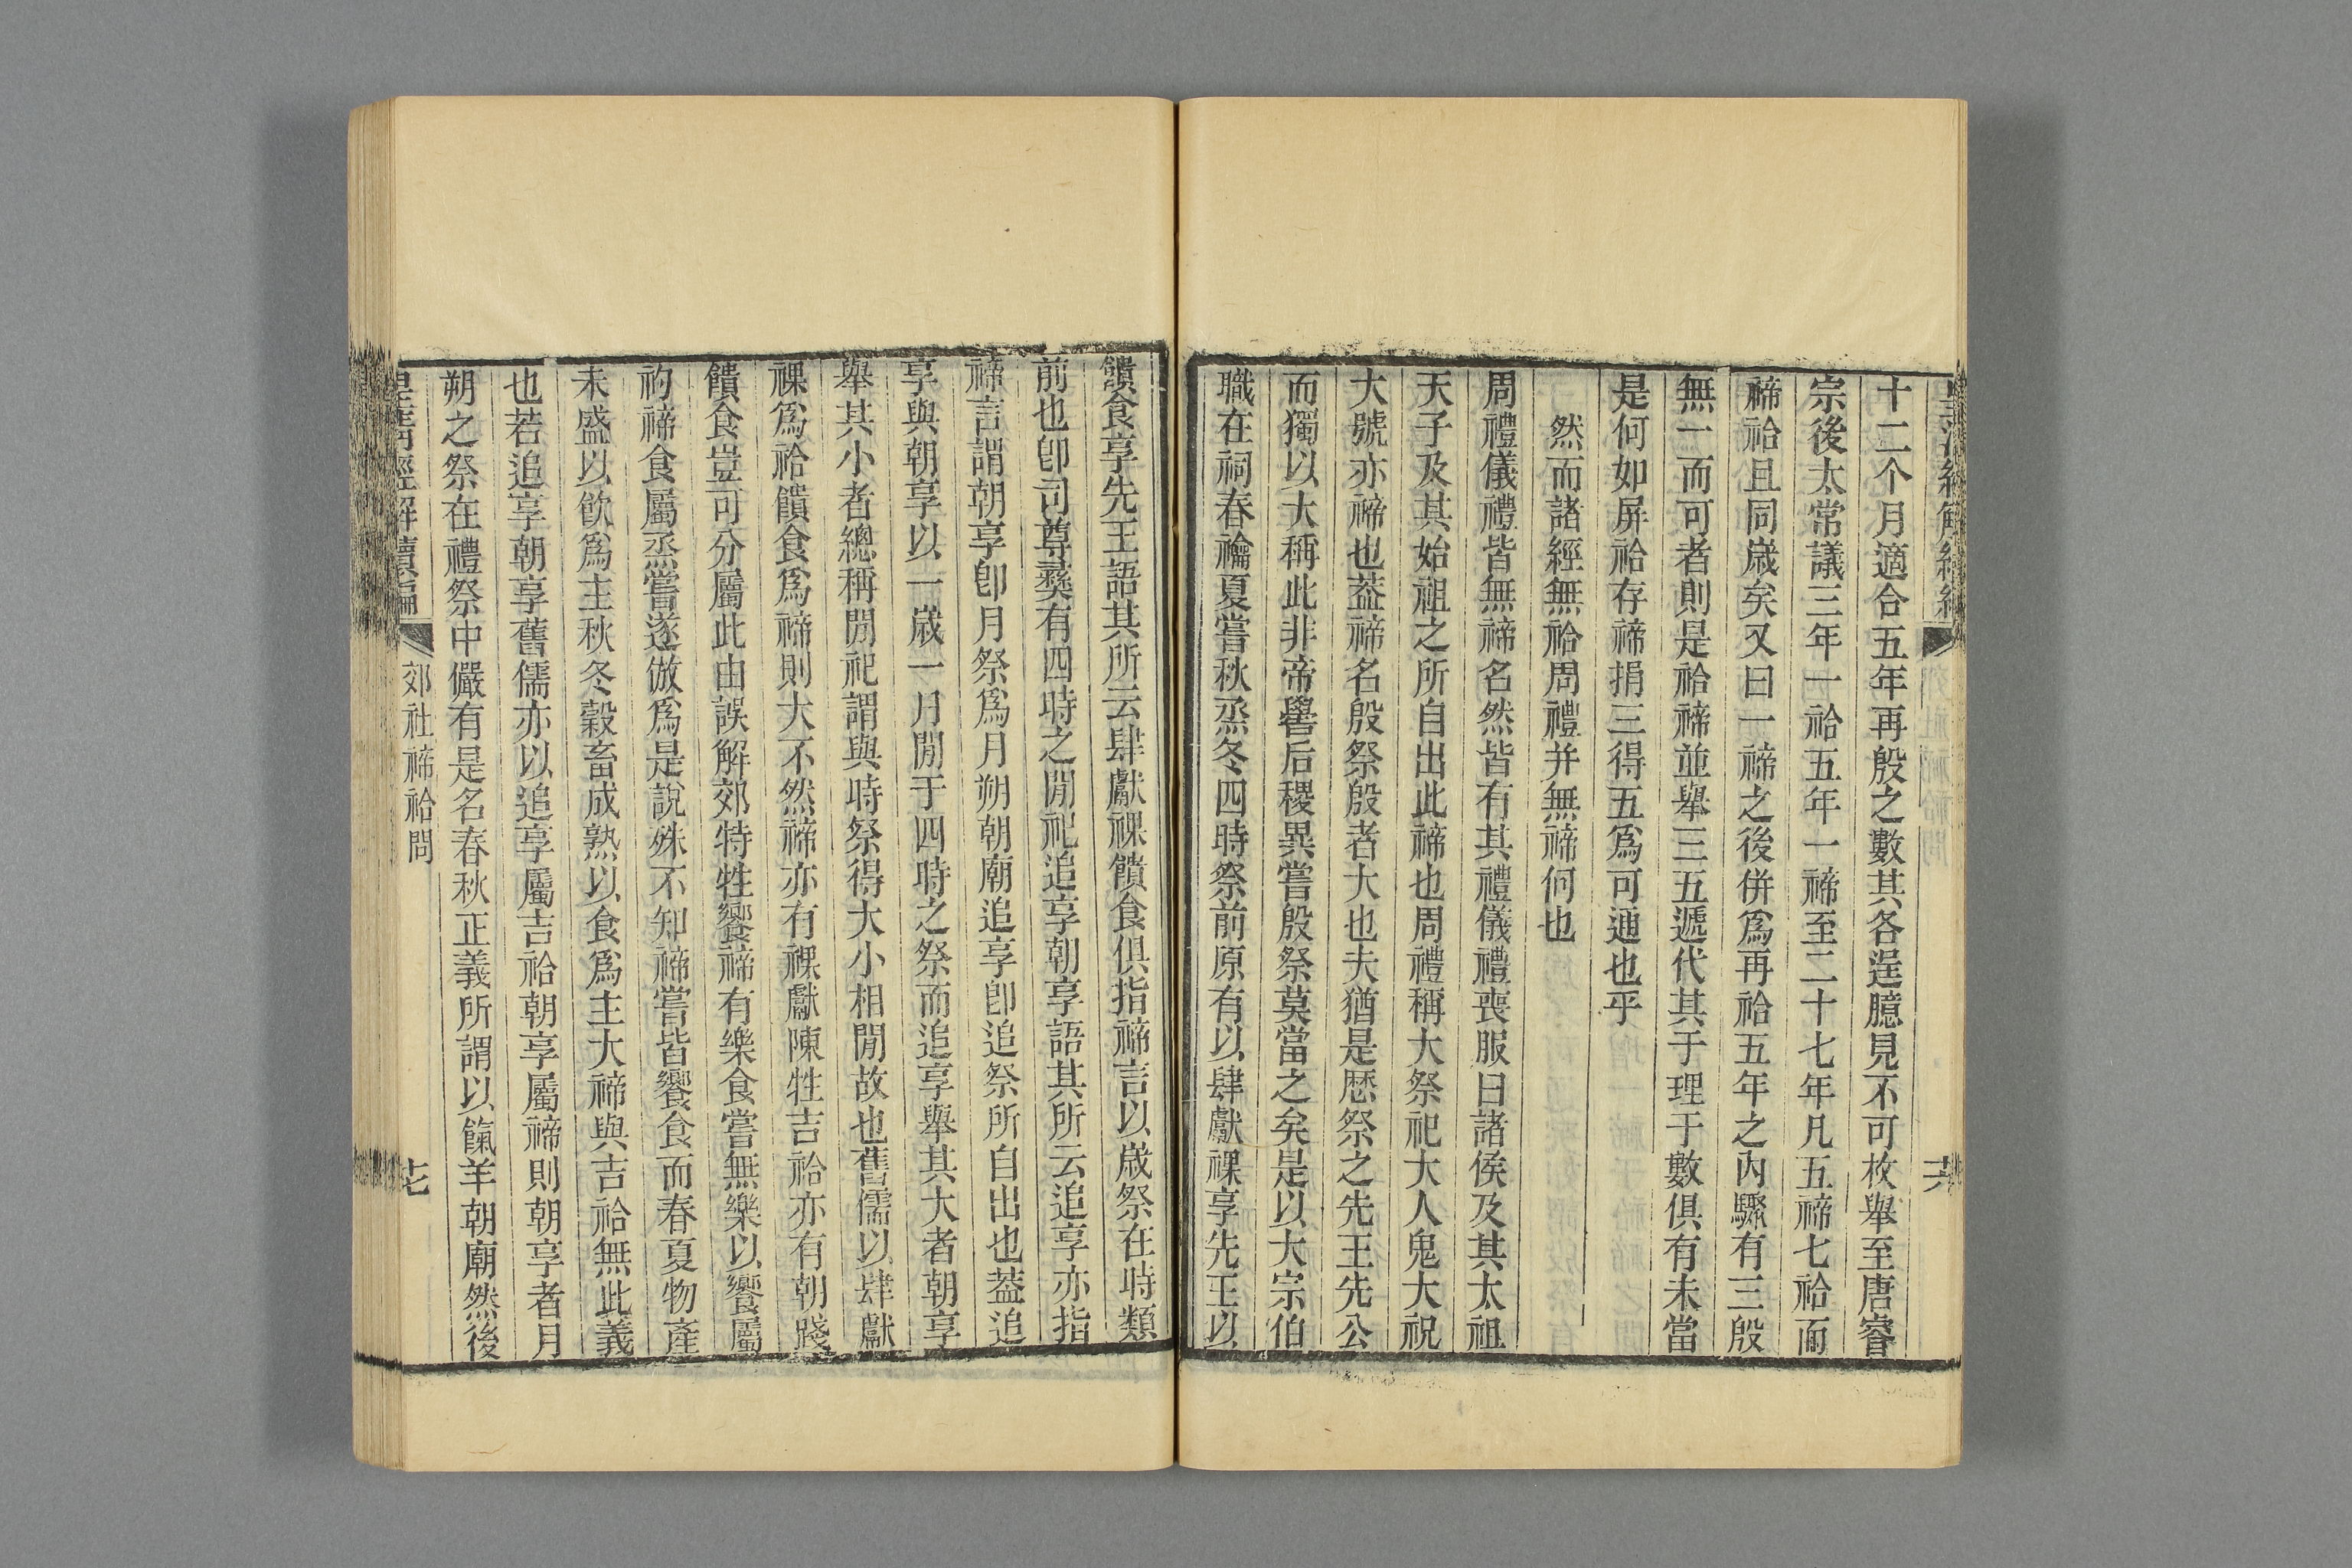 十二个月適合五年再殷之數其各逞臆見不可枚舉至唐睿
宗後太常議三年一祫五年一禘至二十七年凡五禘七祫而
禘祫且同歲矣又曰一禘之後併爲再祫五年之內驟有三殷
無一而可者則是祫禘並舉三五遞代其于理于數俱有未當
是何如屏祫存禘捐三得五爲可通也乎
然而諸經無祫周禮并無禘何也
周禮儀禮皆無禘名然皆有其禮儀禮喪服曰諸侯及其太祖
天子及其始祖之所自出此禘也周禮稱大祭祀大人鬼大祝
大號亦禘也葢禘名殷祭殷者大也夫猶是歷祭之先王先公
而獨以大稱此非帝嚳后稷異嘗殷祭莫當之矣是以大宗伯
職在祠春禴夏嘗秋烝冬四時祭前原有以肆獻祼享先王以
饋食享先王語其所云肆獻祼饋食俱指禘言以歲祭在時類
前也卽司尊彝有四時之閒祀追享朝享語其所云追享亦指
禘言謂朝享卽月祭爲月朔朝廟追享卽追祭所自出也葢追
享與朝享以一歲一月閒于四時之祭而追享舉其大者朝享
舉其小者總稱閒祀謂與時祭得大小相閒故也舊儒以肆獻
祼爲祫饋食爲禘則大不然禘亦有祼獻陳牲吉祫亦有朝踐
饋食豈可分屬此由誤解郊特牲饗禘有樂食嘗無樂以饗屬
礿禘食屬烝嘗遂倣爲是說殊不知禘嘗皆饗食而春夏物產
未盛以飮爲主秋冬穀畜成熟以食爲主大禘與吉祫無此義
也若追享朝享舊儒亦以追享屬吉祫朝享屬禘則朝享者月
朔之祭在禮祭中儼有是名春秋正義所謂以餼羊朝廟然後
皇淸經解續編
郊社禘祫問